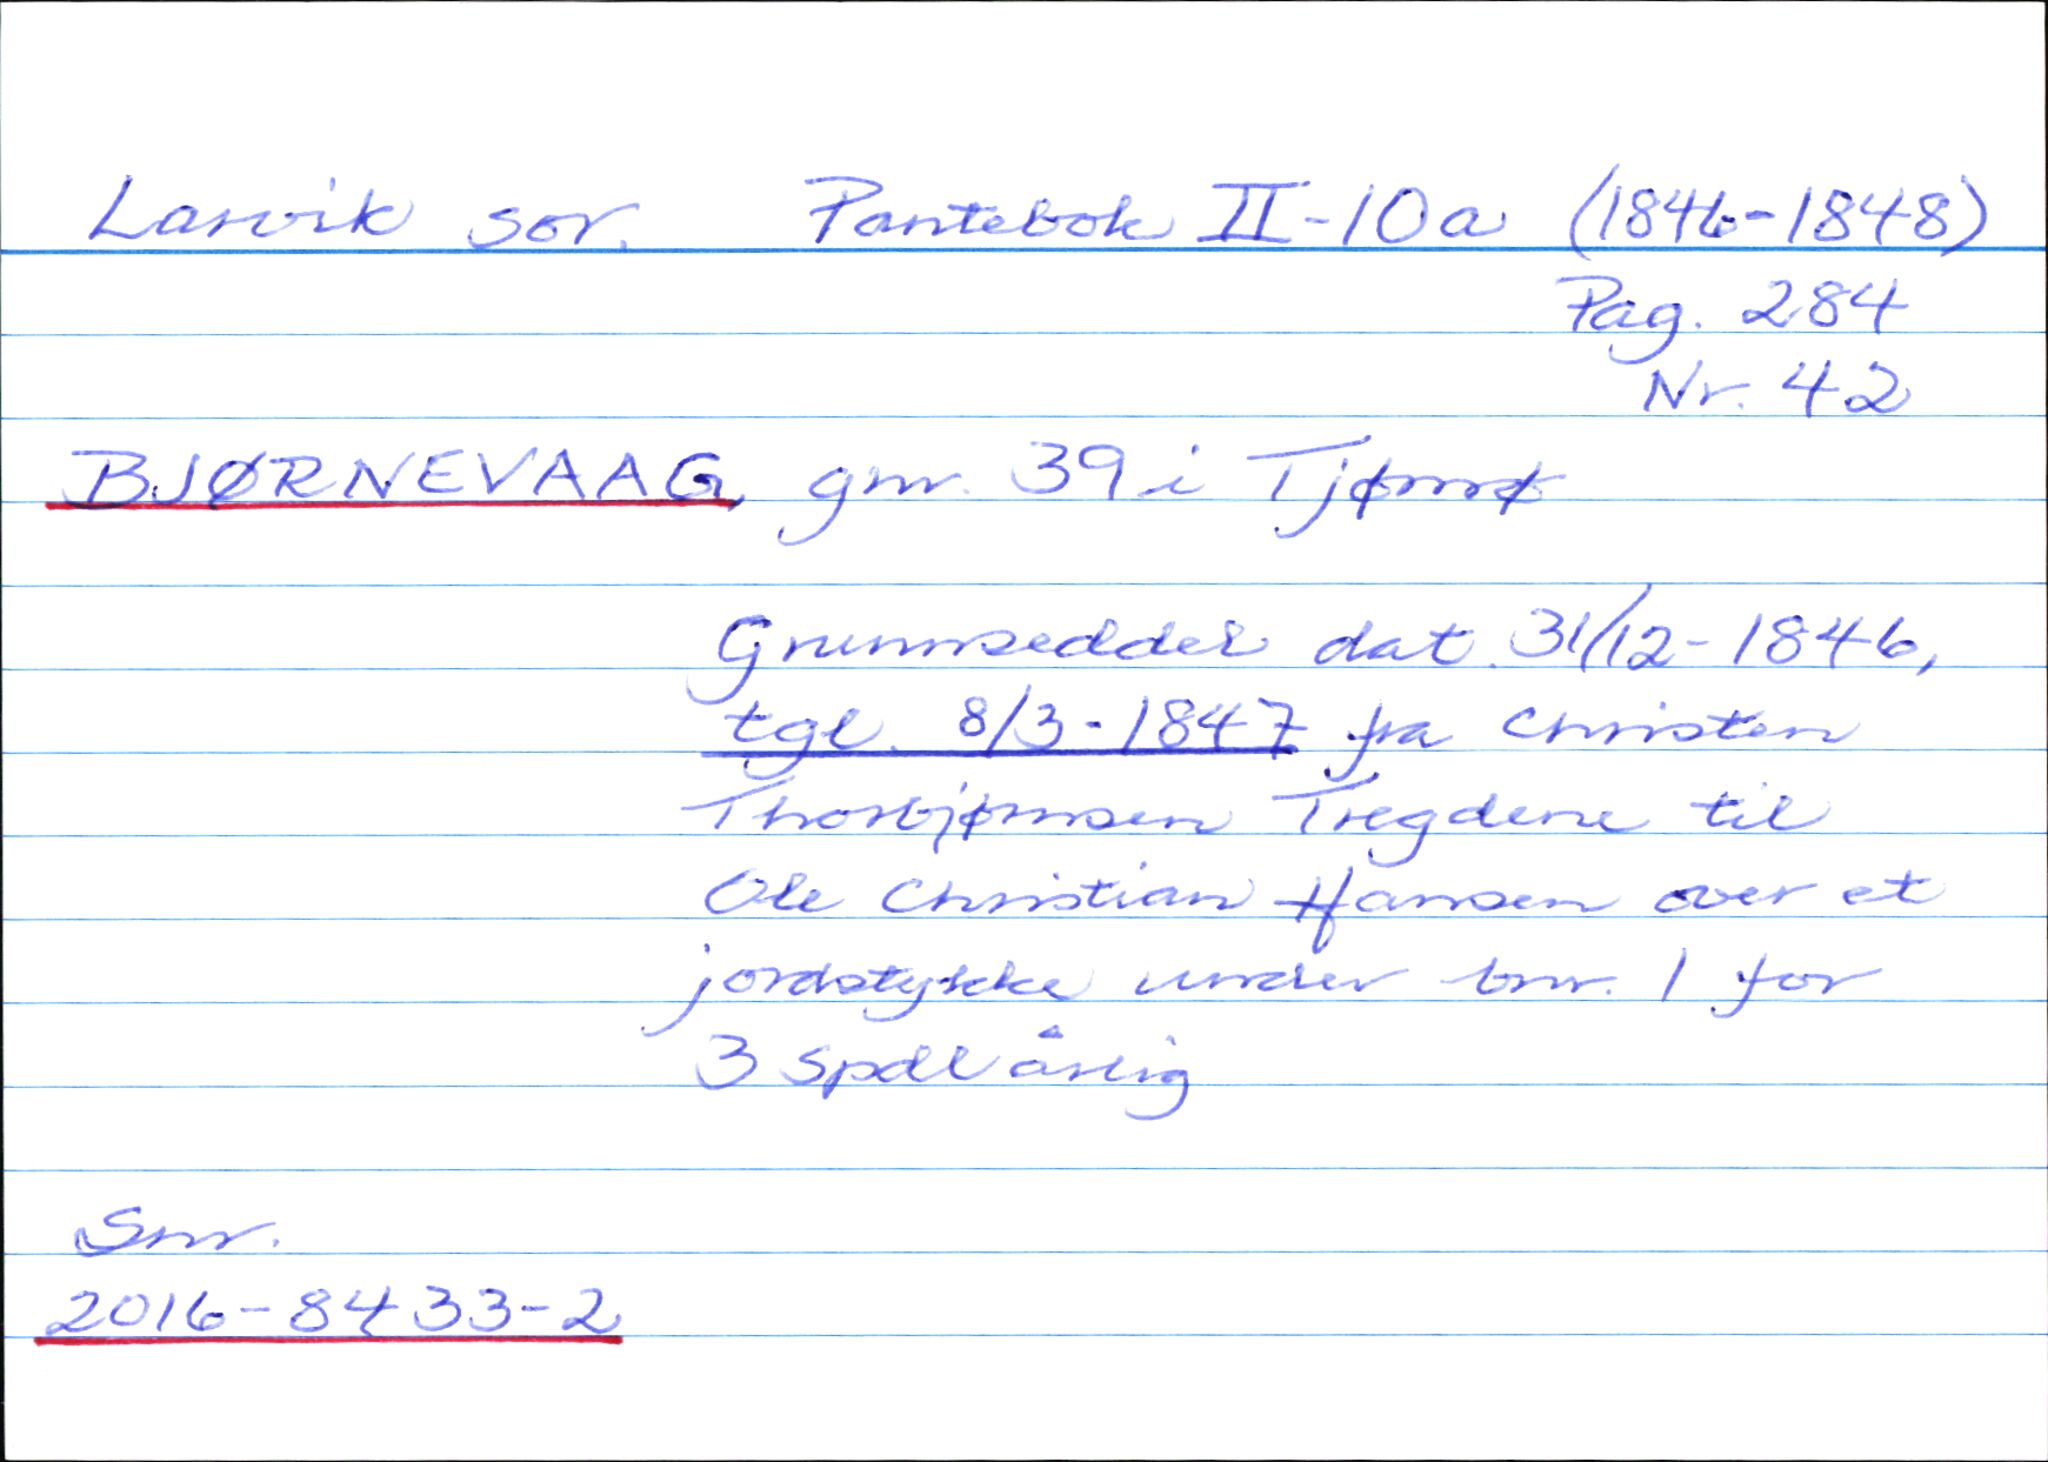 Larvik sor. Pantebok II-10a (1846-1848)
Pag. 284
Nr. 42
BJØRNEVAAG, gnr. 39 i Tjømø
Grunnseddel dat. 31/12-1846,
tgl. 8/3-1847 fra Christen
Thorbjørnsen Tregdene til
Ole Christian Hansen over et
jordstykke under bnr. 1 for
3 Spdl årlig
Snr.
2016-8433-2